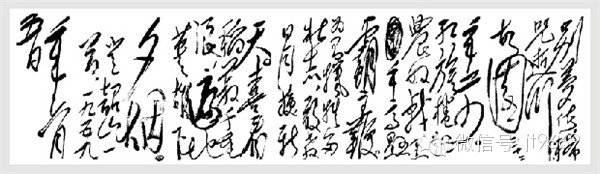 别梦依稀
咒逝川
故园
年前
红旗卷起
农奴戟
黑手高悬
霸主鞭
为有牺牲多
壮志敢教
日月换新
天喜看
稻菽千重
浪遍地
英雄下
夕烟
登韶山一
首一九五九
年六月
微信号: